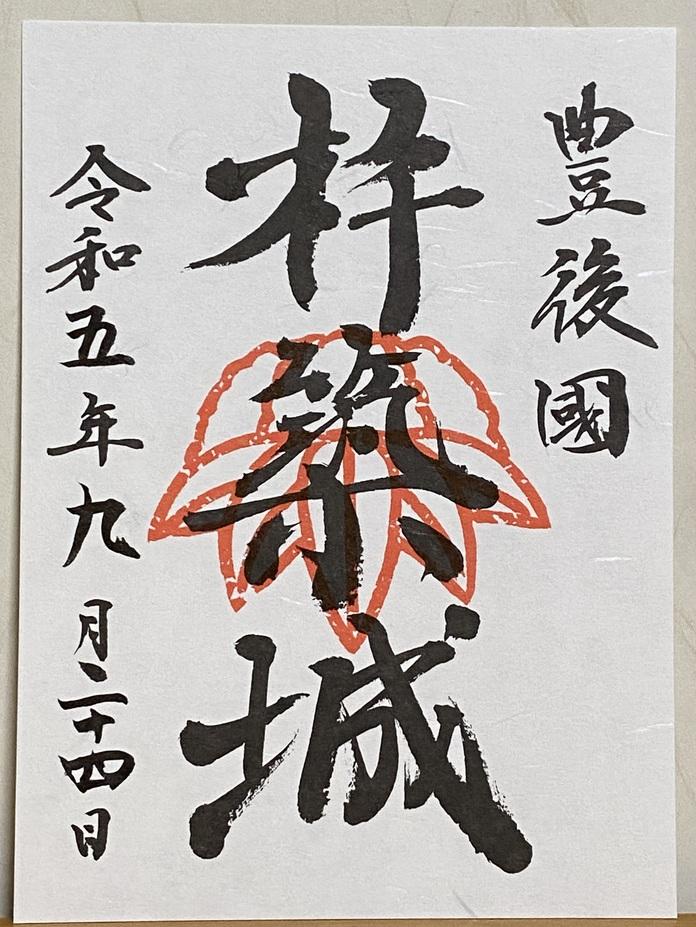 豊後國
杵築城
令和五年九月二十四日